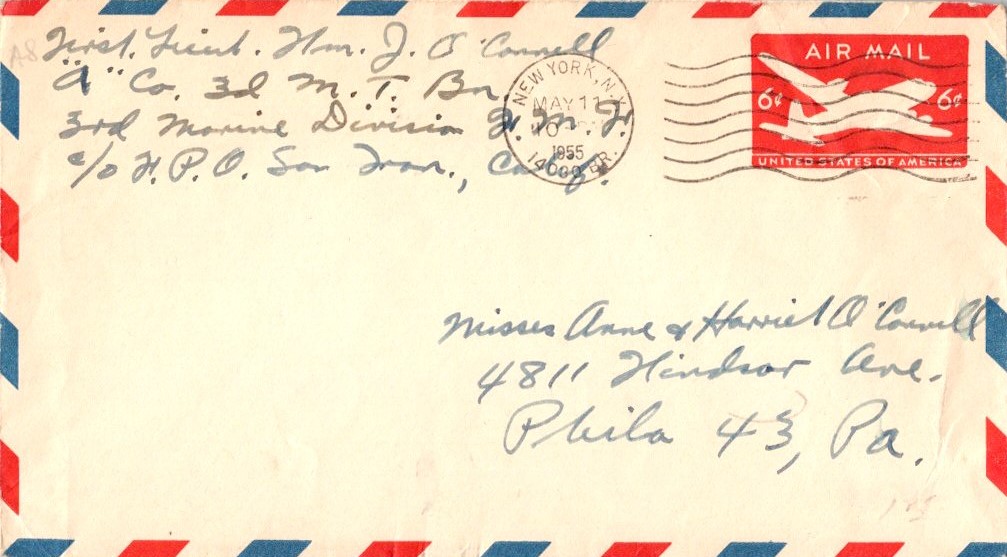 A8
First. Lieut. Wm. J. O'Connell
"A" Co. 3d M. T. Bn.
3rd Marine Division F. M. F.
c/o F. P. O. San Fran., Calif.
NEW YORK, N.Y.
MAY 11
10
1955
14 BR.
AIR MAIL
6¢ 6¢
UNITED STATES OF AMERICA
Misses Anne & Harriet O'Connell
4811 Windsor Ave.
Phila 43, Pa.